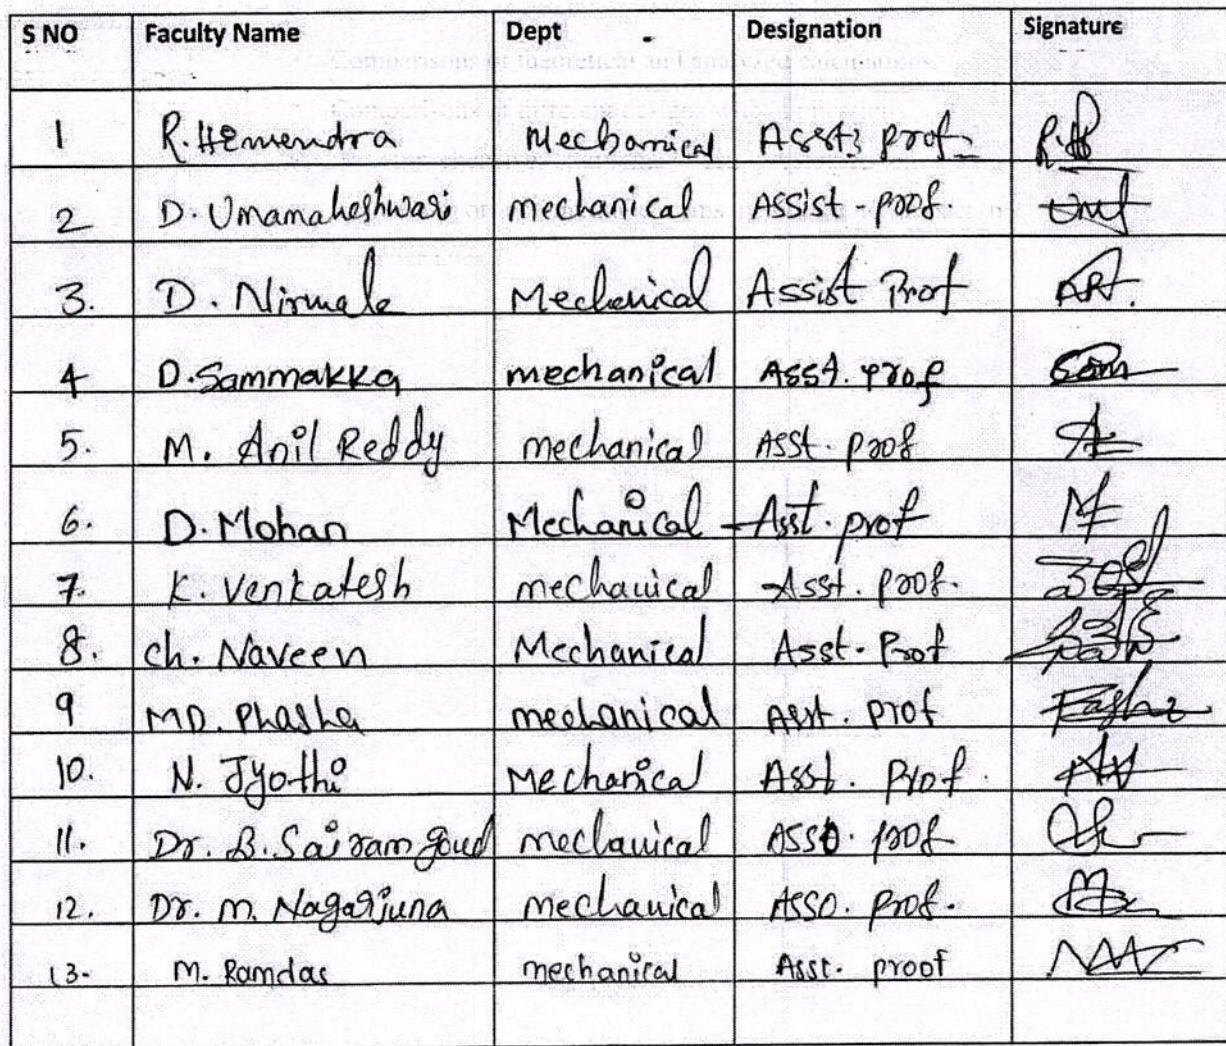 S NO Faculty Name Dept Designation Signature
1 R. Hemendra Mechanical Asst. prof.
2 D. Umamaheshwari mechanical Assist - prof.
3. D. Nirmala Mechanical Assist Prof
4 D. Sammakka mechanical Asst. prof
5. M. Anil Reddy mechanical Asst. prof
6. D. Mohan Mechanical Asst. prof
7. K. Venkatesh mechanical Asst. prof.
8. ch. Naveen Mechanical Asst. Prof
9 MD. Phasha mechanical Asst. prof
10. N. Jyothi Mechanical Asst. Prof.
11. Dr. B. Sairam goud mechanical Asso. prof
12. Dr. M. Nagarjuna mechanical Asso. prof.
13- M. Ramdas mechanical Asst. proof